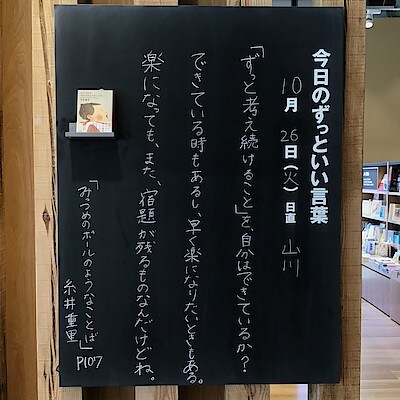 今日のずっといい言葉
10月26日(火)日直 山川
「ずっと考え続けること」を、自分はできているか?
できている時もあるし、早く楽になりたいときもある。
楽になっても、また、宿題が残るものなんだけどね。
「みっつめのボールのようなことば」P107
糸井重里